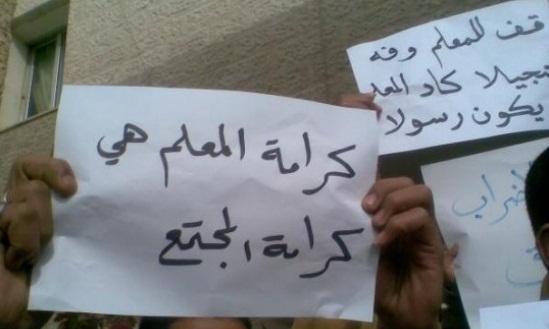 كرامة المعلم هي
كرامة المجتمع
قف للمعلم وفه
بجيلا كاد المعلـ
يكون رسولا
ضراب